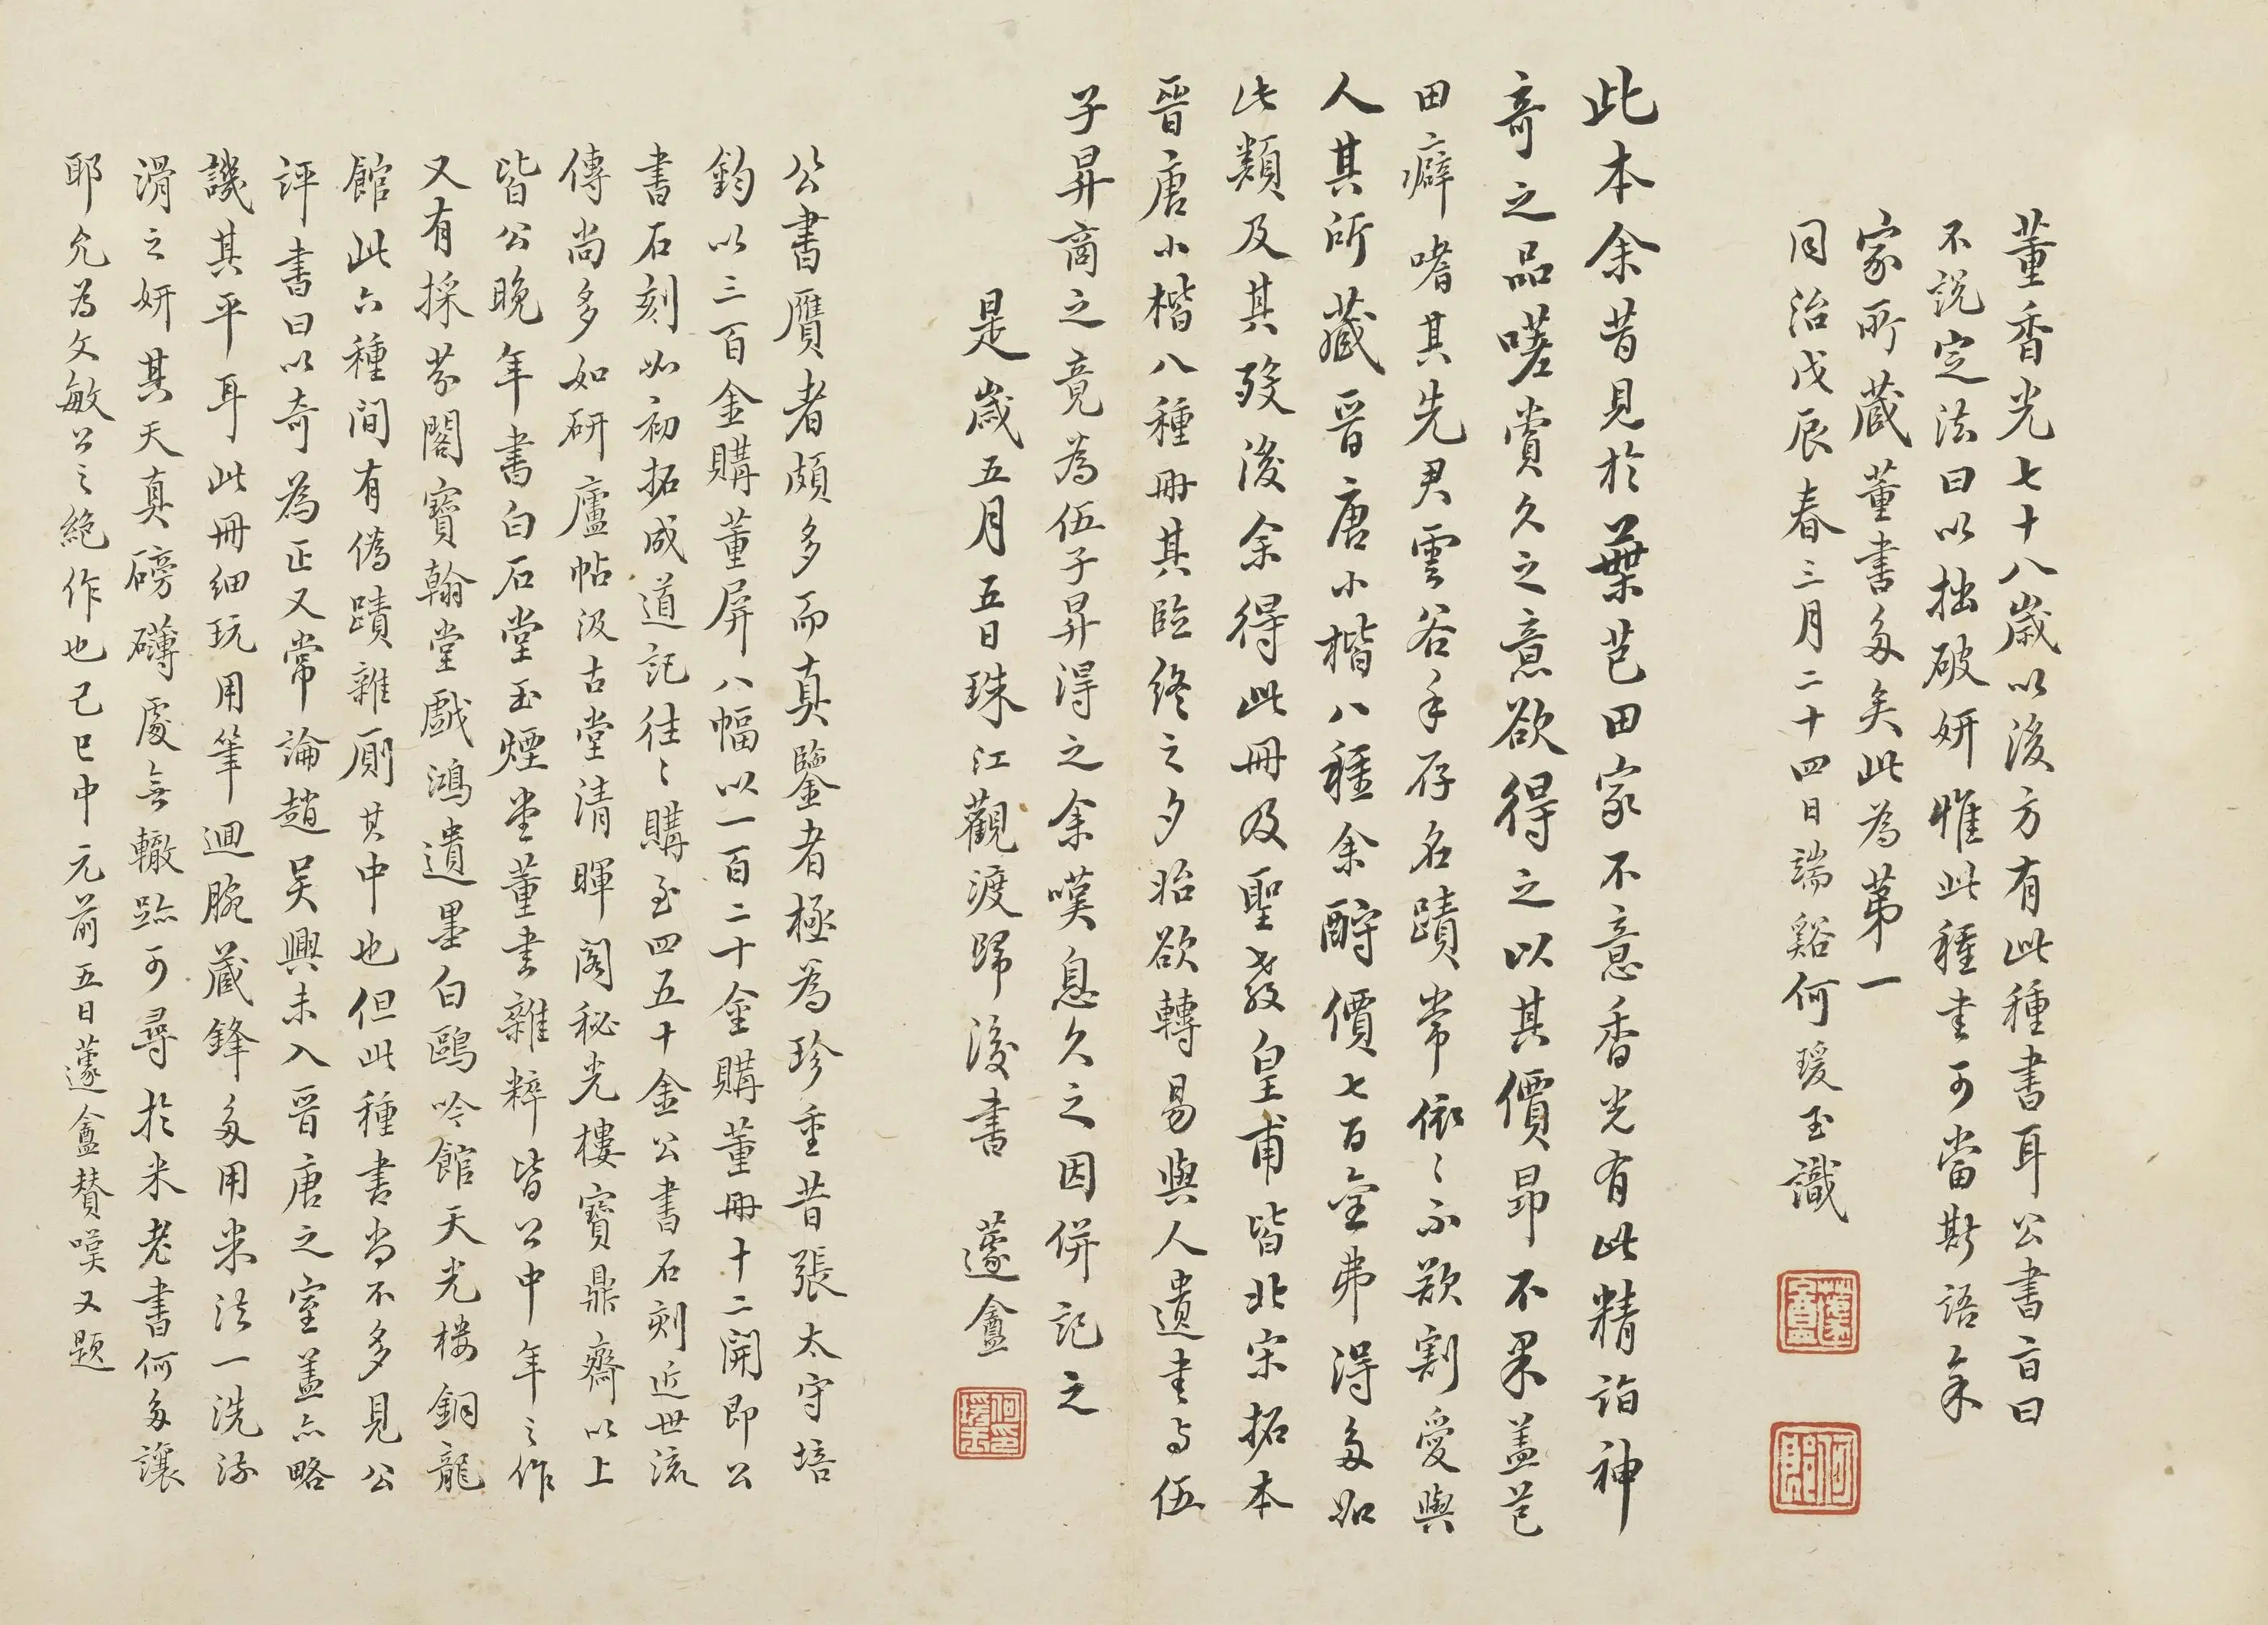 董香光七十八歲以後方有此種書耳公書旨曰
不說定法曰以拙破妍惟此種書可當斯語余
家所藏董書多矣此為第一
同治戊辰春三月二十四日端谿何瑗玉識
此本余昔見於葉芑田家不意香光有此精詣神
奇之品嗟賞久之意欲得之以其價昂不果蓋芑
田癖嗜其先君雲谷手存名蹟常依〻不欲割愛與
人其所藏晉唐小楷八種余酧價七百金弗得多如
此類及其歿後余得此冊及聖教皇甫皆北宋拓本
晉唐小楷八種冊其臨終之夕始欲轉易與人遺書与伍
子昇商之竟為伍子昇得之余嘆息久之因併記之
是歲五月五日珠江觀渡歸後書 蘧盦
公書贗者頗多而真鑒者極為珍重昔張太守培
鈞以三百金購董屏八幅以一百二十金購董冊十二開即公
書石刻如初拓成道記往〻購至四五十金公書石刻近世流
傳尚多如研廬帖汲古堂清暉閣秘光樓寶鼎齋以上
皆公晚年書白石堂玉煙堂董書雜粹皆公中年之作
又有採芬閣寶翰堂戲鴻遺墨白鷗吟館天光樓銅龍
館此六種間有偽蹟雜廁其中也但此種書尚不多見公
評書曰以奇為正又常論趙吳興未入晉唐之室蓋亦略
譏其平耳此冊細玩用筆迴腕藏鋒多用米法一洗流
滑之妍其天真磅礴處無轍跡可尋於米老書何多讓
耶允為文敏公之絕作也己巳中元前五日蘧盦贊嘆又題
蘧盦
何瑗玉印